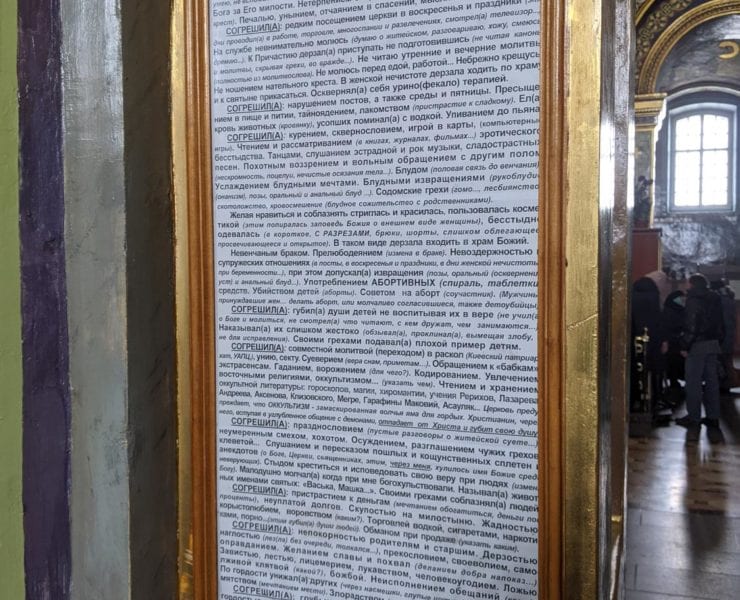 Бога за Его милости. Нетерпением
крест). Печалью, унынием, отчаянием в спасении, мыслями
СОГРЕШИЛ(А): редким посещением церкви в воскресенья и праздники (Эти
дни проводил(а) в работе, торговле, многоспании и развлечениях, смотрел(а) телевизор...)
На службе невнимательно молюсь (думаю о житейском, разговариваю, хожу, смеюсь
дремаю...). К Причастию дерзал(а) приступать не подготовившись (не читая канон
и молитвы, скрывая грехи, во вражде...). Не читаю утренние и вечерние молитвы
(полностью из молитвослова). Не молюсь перед едой, работой... Небрежно крещусь
Не ношением нательного креста. В женской нечистоте дерзала ходить по храму
и к святыне прикасаться. Осквернял(а) себя урино(фекало) терапией.
СОГРЕШИЛ(А): нарушением постов, а также среды и пятницы. Пресыще
нием в пище и питии, тайноядением, лакомством (пристрастие к сладкому). Ел(а)
кровь животных (кровянку), усопших поминал(а) с водкой. Упиванию до пьяна
СОГРЕШИЛ(А): курением, сквернословием, игрой в карты, (компьютерные
игры). Чтением и рассматриванием (в книгах, журналах, фильмах...) эротического
бесстыдства. Танцами, слушанием эстрадной и рок музыки, сладострастных
песен. Похотным воззрением и вольным обращением с другим полом
(нескромность, поцелуи, нечистые осязания тела...). Блудом (половая связь до венчания)
Услаждением блудными мечтами. Блудными извращениями (рукоблудие
(онанизм), позы, оральный и анальный блуд ...). Содомские грехи (гомо..., лесбиянство
скотоложство, кровосмешение (блудное сожительство с родственниками).
Желая нравиться и соблазнять стриглась и красилась, пользовалась косме
тикой (этим попиралась заповедь Божия о внешнем виде женщины), бесстыдно
одевалась (в короткое, С РАЗРЕЗАМИ, брюки, шорты, слишком облегающее
просвечивающееся и открытое). В таком виде дерзала входить в храм Божий.
Невенчаным браком. Прелюбодеянием (измена в браке). Невоздержностью
супружеских отношениях (в посты, в воскресенья и праздники, в дни женской нечистоты
при беременности..), при этом допускал(а) извращения (позы, оральный (осквернени
уст) и анальный блуд..). Употреблением АБОРТИВНЫХ (спираль, таблетки
средств. Убийством детей (аборты). Советом на аборт (соучастник). (Мужчины
принуждавшие жен... делать аборт, или молчаливо согласившиеся, также детоубийцы)
СОГРЕШИЛ(А): губил(а) души детей не воспитывая их в вере (не учил(а)
о Боге и молиться, не смотрел(а) что читают, с кем дружат, чем занимаются...)
Наказывал(а) их слишком жестоко (обзывал(а), проклинал(а), вымещая злобу,
не для исправления). Своими грехами подавал(а) плохой пример детям.
СОГРЕШИЛ(А): совместной молитвой (переходом) в раскол (Киевский патриар
хат, УАПЦ), унию, секту. Суеверием (вера снам, приметам...). Обращением к «бабкам»
экстрасенсам. Гаданием, ворожением (для чего?). Кодированием. Увлечением
восточными религиями, оккультизмом... (указать чем). Чтением и хранением
оккультной литературы: гороскопов, магии, хиромантии, учения Рерихов, Лазарев
Андреева, Аксенова, Клизовского, Мегре, Гарафины Маковий, Асауляк... Церковь преду
преждает, что ОККУЛЬТИЗМ - замаскированная волчья яма для гордых. Христианин, через
него, вступая в углубленное общение с демонами, отпадает от Христа и губит свою душу
СОГРЕШИЛ(А): празднословием (пустые разговоры о житейской суете...)
неумеренным смехом, хохотом. Осуждением, разглашением чужих грехов
клеветой... Слушанием и пересказом пошлых и кощунственных сплетен и
анекдотов (о Боге, Церкви, священниках, этим, через меня, хулимо имя Божие сред
неверующих). Стыдом креститься и исповедовать свою веру при людях (измена
Богу). Малодушно молчал(а) когда при мне богохульствовали. Называл(а) живот
ных именами святых: «Васька, Машка...». Своими грехами соблазнял(а) людей
СОГРЕШИЛ(А): пристрастием к деньгам (мечтанием обогатиться, деньги по
проценты), неуплатой долгов. Скупостью на милостыню. Жадностью
корыстолюбием, воровством (каким?). Торговлей водкой, сигаретами, наркоти
ками, порно...(этим губил(а) души людей). Обманом при продаже (указать каким).
СОГРЕШИЛ(А): непокорностью родителям и старшим. Дерзостью
наглостью (лез(ла) без очереди, толкался...), прекословием, своеволием, само
оправданием. Желанием славы и похвал (деланием добра напоказ...)
Завистью, лестью, лицемерием, лукавством, человекоугодием. Ложью
лживой клятвой (какой?), Божбой. Неисполнением обещаний
По гордости унижал(а) других (через насмешки, глупые
митством (мечтанием мести). Злорадством
СОГРЕШИЛ(А):